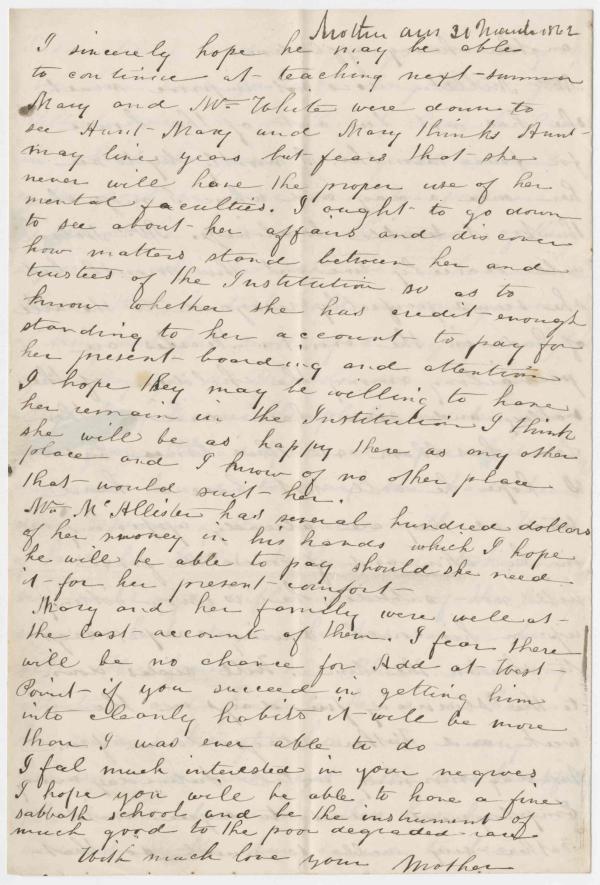 Mother ans 31 March 1862
I sincerely hope he may be able
to continue at teaching next summer
Mary and Mr White were down to
see Aunt Mary and Mary thinks Aunt
may live years but fears that she
never will have the proper use of her
mental faculties. I ought to go down
to see about her affairs and discover
how matters stand between her and
trustees of the Institution so as to
know whether she has credit enough
standing to her account to pay for
her present boarding and attention
I hope they may be willing to have
her remain in the Institution I think
she will be as happy there as any other
place and I know of no other place
that would suit her.
Mr McAllister has several hundred dollars
of her money in his hands which I hope
he will be able to pay should she need
it for her present comfort
Mary and her family were well at
the last account of them. I fear there
will be no chance for Add at West
Point if you succeed in getting him
into cleanly habits it will be more
than I was ever able to do
I feel much interested in your negroes
I hope you will be able to have a fine
sabbath school and be the instrument of
much good to the poor degraded race
With much love your Mother